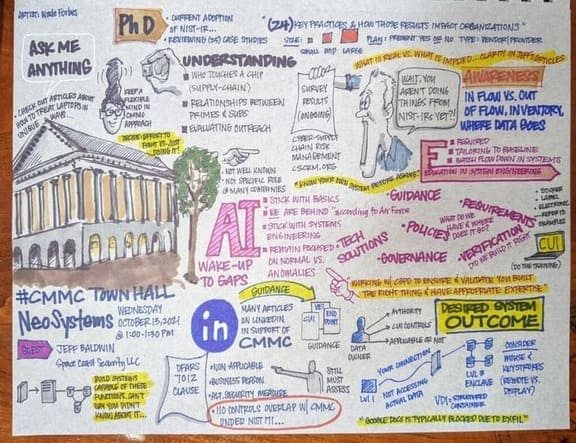 ARTIST: Wade Forbes
ASK ME
ANYTHING
PhD
• CURRENT ADOPTION
OF NIST-IR...
• REVIEWING (24) CASE STUDIES
"(24) KEY PRACTICES & HOW THOSE RESULTS IMPACT ORGANIZATIONS"
SIZE:
SMALL MID LARGE
PLAN: PRESENT YES OR NO TYPE: VENDOR PROVIDER
• CHECK OUT ARTICLES ABOUT
HOW TO TREAT LAPTOPS IN
UNIQUE WAYS...
KEEP A
FLEXIBLE
MIND IN
CMMC
APPROACH
DECIDE: EFFORT TO
FIGHT VS. JUST
DOING IT!
UNDERSTANDING
• WHO TOUCHES A CHIP
(SUPPLY-CHAIN)
• RELATIONSHIPS BETWEEN
PRIMES & SUBS
• EVALUATING OUTREACH
• NOT WELL KNOWN
• NOT SPECIFIC ROLE
@ MANY COMPANIES
SURVEY
RESULTS
(ONGOING)
CYBER-SUPPLY
CHAIN RISK
MANAGEMENT
CSCRM.ORG
WHAT IS REAL VS. WHAT IS IMPLIED... CLARITY IN JEFF'S ARTICLES
WAIT, YOU
AREN'T DOING
THINGS FROM
NIST-IRs YET?!
"KNOW YOUR OWN SYSTEM BEFORE ASKING"
AWARENESS
IN FLOW VS. OUT
OF FLOW, INVENTORY,
WHERE DATA GOES
E
• REQUIRED
• TAILORING TO BASELINE
• WATCH FLOW DOWN IN SYSTEMS
EDUCATION IN SYSTEM ENGINEERING
AI
WAKE-UP
TO GAPS
• STICK WITH BASICS
• WE ARE BEHIND "according to Air Force"
• STICK WITH SYSTEMS
ENGINEERING
• REMAIN FOCUSED
ON NORMAL VS.
ANOMALIES
• GUIDANCE
• POLICIES
• TECH
SOLUTIONS
• GOVERNANCE
• REQUIREMENTS
WHAT DO WE
HAVE & WHERE
DOES IT GO?
• VERIFICATION
DID WE BUILD IT RIGHT
• STICKER
• LABEL
• ELECTRONIC
• REFER TO
EXAMPLES
CUI
(DO THE TRAINING)
WORKING W/ C3PO TO ENSURE & VALIDATE YOU BUILT
THE RIGHT THING & HAVE APPROPRIATE EXPERTISE
#CMMC TOWN HALL
NeoSystems
WEDNESDAY
OCTOBER 13, 2021
@ 1:00-1:30 PM
GUEST
JEFF BALDWIN
Space Coast Security LLC
BUILD SYSTEMS
CAPABLE OF THESE
FUNCTIONS. CAN'T
SAY YOU DIDN'T
KNOW ABOUT IT...
GUIDANCE
in
MANY ARTICLES
ON LINKEDIN
IN SUPPORT OF
CMMC
CUI
END
POINT
GUIDANCE
DATA
OWNER
AUTHORITY
CUI CONTROLS
APPLICABLE OR NOT
DFARS
7012
CLAUSE
• NON-APPLICABLE
• BUSINESS REASON
• ALT. SECURITY MEASURE
• 110 CONTROLS OVERLAP W/ CMMC
UNDER NIST 171...
STILL
MUST
ASSESS
DESIRED SYSTEM
OUTCOME
YOUR CONNECTION
LVL 1
NOT ACCESSING
ACTUAL DATA
LVL 3
ENCLAVE
VDI: STRUCTURED
CONTAINER
CONSIDER
MOUSE &
KEYSTROKES
(REMOTE VS.
DISPLAY)
"GOOGLE DOCS IS TYPICALLY BLOCKED DUE TO EXFIL"